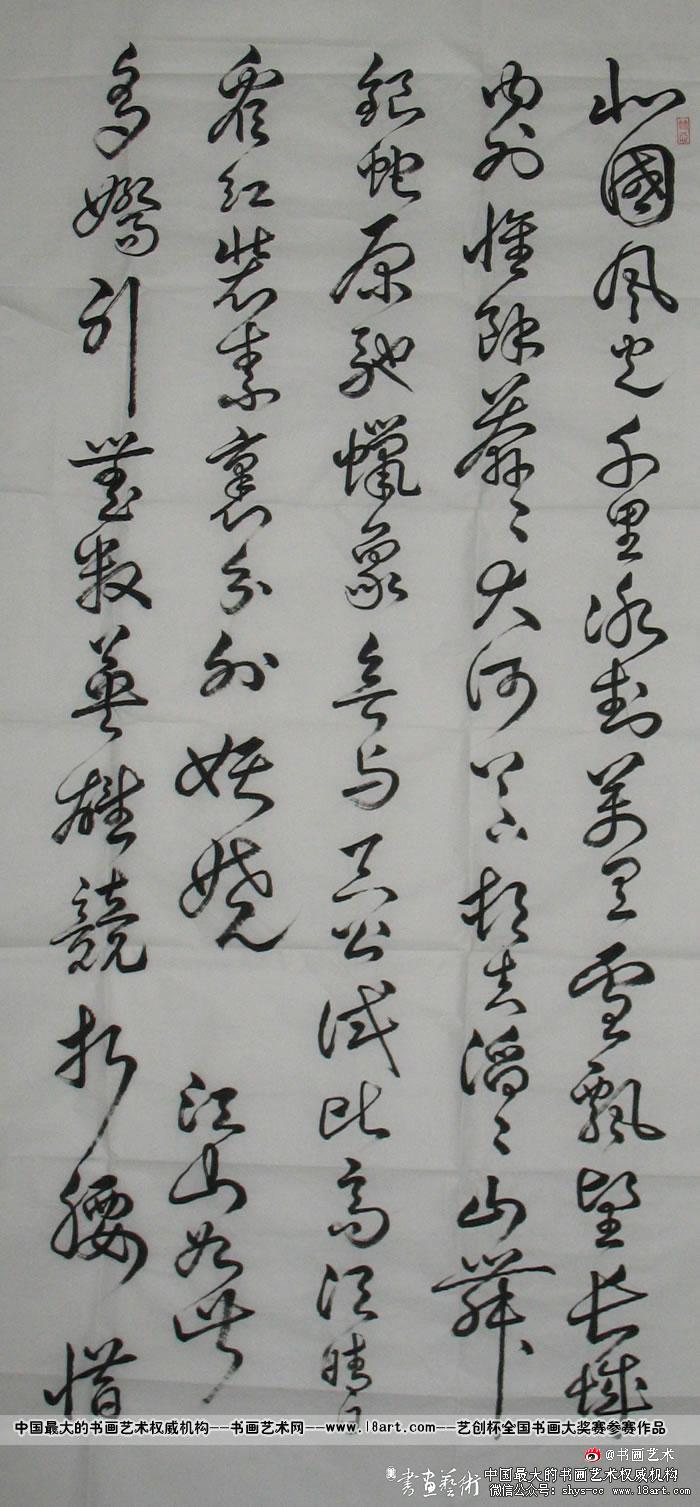 北國風光千里冰封萬里雪飄望長城
內外惟餘莽々大河上下頓失滔々山舞
銀蛇原馳蠟象欲与天公試比高須晴日
看紅裝素裹分外妖嬈 江山如此
多嬌引無數英雄競折腰 惜
中国最大的书画艺术权威机构--书画艺术网--www.18art.com--艺创杯全国书画大奖赛参赛作品
@书画艺术
書畫藝術 中国最大的书画艺术权威机构
微信公众号: shys-cc www.18art.com